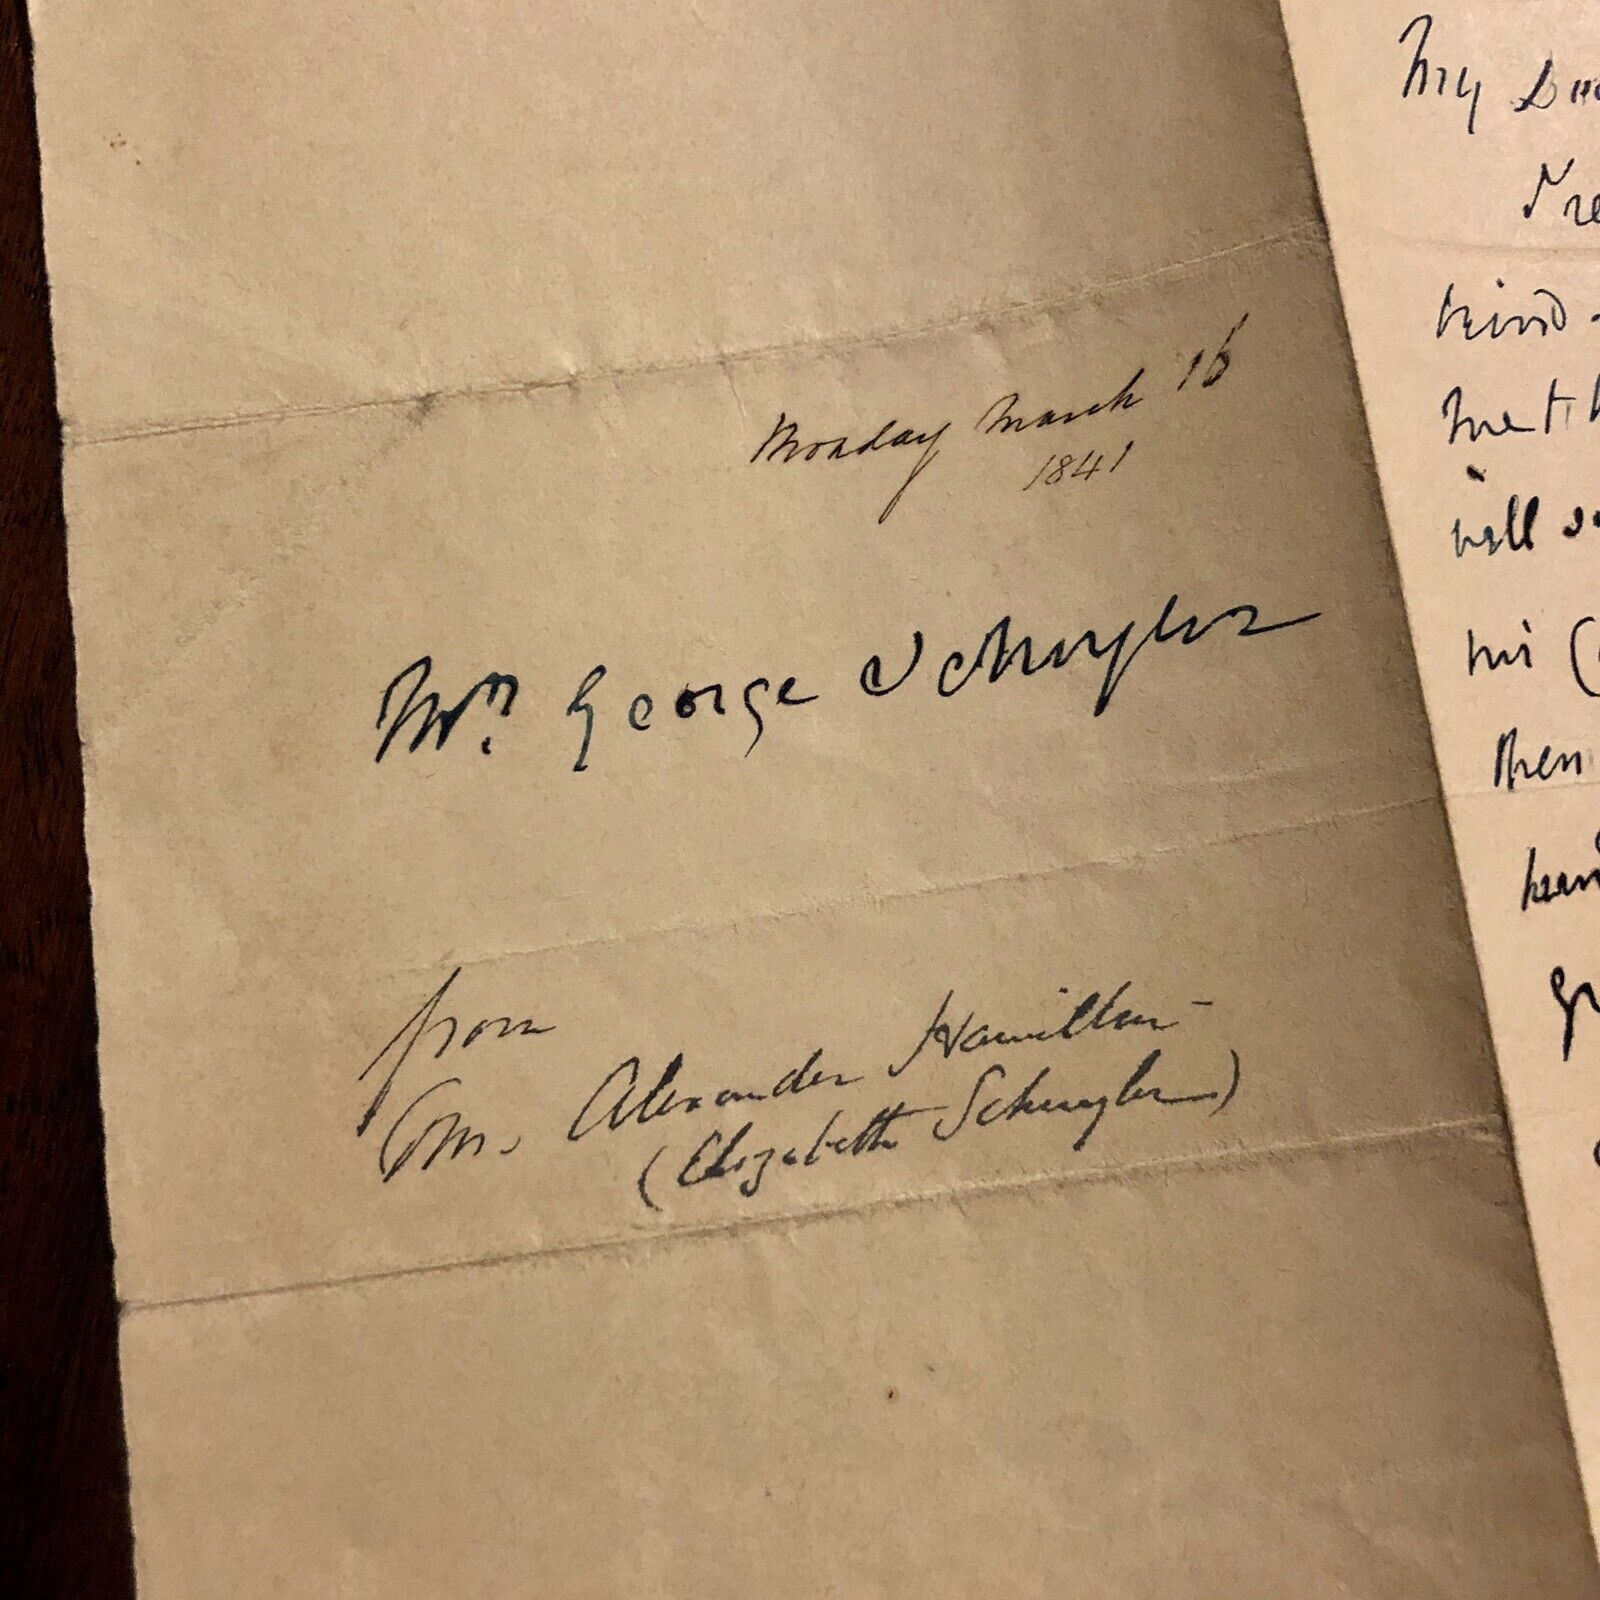 Monday March 16
1841
Mrs. George Schuyler
from
Mrs. Alexander Hamilton
(Elizabeth Schuyler)
My
kind
me
will
then